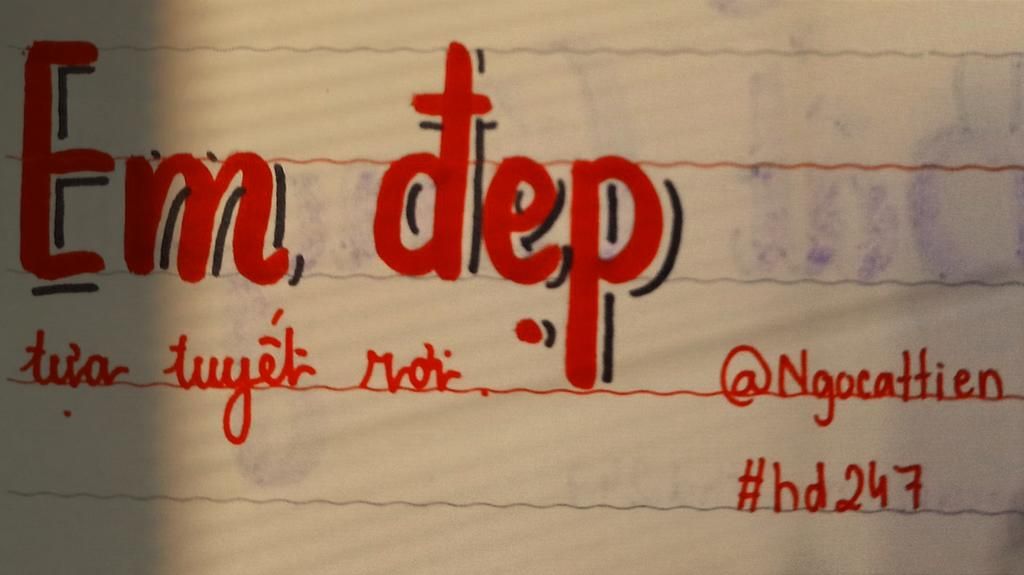 Em đẹp
tựa tuyết rơi.
@Ngocattien
#hd247